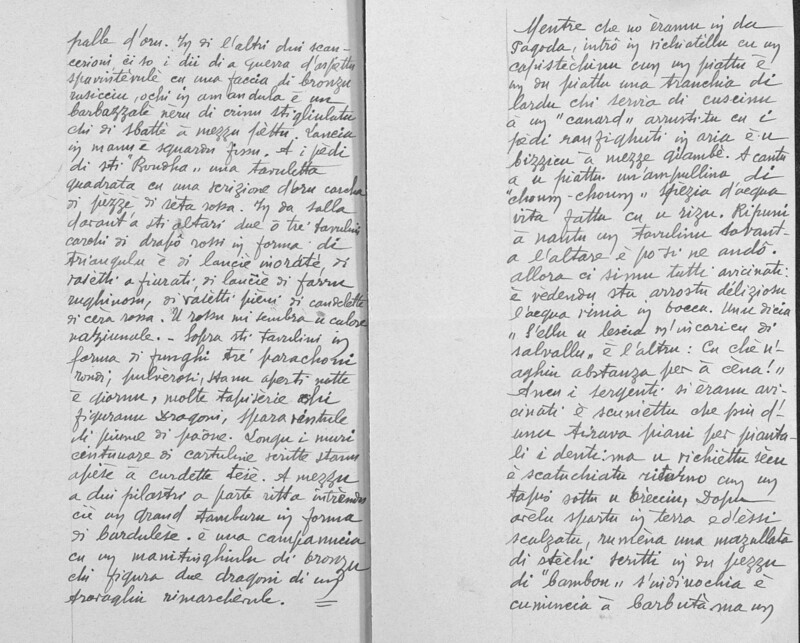 palle d'oru. In di l'altri dui scan-
cerioni, ci so i dii di a guerra d'aspettu
spavintèvule cu una faccia di bronzu
rusicciu, ochi in amandula è un
barbazzale nèru di crinu stigliulatu
chi di sbattè à mezzu pèttu. Lancia
in manu è sguardu fissu. A i pèdi
di sti "Boudha" una tavuletta
quadrata cu una scrizione d'oru carcha
di pèzzè di seta rossa. In da salla
davant'a sti altari due ò trè tavulini
carchi di drapò rossi in forma di
triangulu è di lancie indoratè, di
vasetti a fiurati, di lancie di farru
rughinosu, di vasetti pieni di candelette
di cèra rossa. U rossu mi sembra u culore
naziunale. – Sopra sti tavulini in
forma di funghi trè parachoni
rondi, pulvèrosi, stanu aperti notte
è ghiornu, molte tapiserie chi
figuranu Dragoni, spara ventule
di piume di paône. Longu i muri
centunare di cartuline scritte stanu
apèse à curdette tèse. A mezzu
a dui pilastri a parte ritta intrèndu
ciè un grand tamburu in forma
di bardulèse. è una campanucia
cu un manitinghiulu di bronzu
chi figura due dragoni di un
travagliu rimarchèvule.
Mentre che no èramu in da
Pagoda, intrô in richiatellu cu un
capistèchinu cun un piattu è
in du piattu una tranchia di
lardu chi servia di cuscinu
à un "canard" arrustitu cu i
pèdi ranfighuti in aria è u
bizzicu à mezze ghjambè. A cantu
a u piattu un'ampullina di
"choum-choum" spezia d'acqua
vita fatta cu u rizu. Ripuni
à nantu un tavulinu davant-
a l'altare è po si ne andô.
allora ci simu tutti avicinati:
è vèdendu stu arrostu deliziosu
l'acqua vinia in bocca. Unu dicia
"S'ellu u lascia m'incaricu di
salvallu" è l'altru: Cu chè n'-
aghiu abstanza per à cena!"
Ancu i sergenti si èranu avi-
cinati è scumettu che più d'-
unu tirava piani per pianta-
li i denti ma u richièttu sècu
è scatuchiatu ritorno cun un
tapiò sottu u brècciu, Dopu
avèlu spartu in terra ed'essi
scalzatu, rumèna una mazzullata
di stèchi scritti in du pezzu
di "bambou" s'indinochia è
cumencia à barbutà ma un